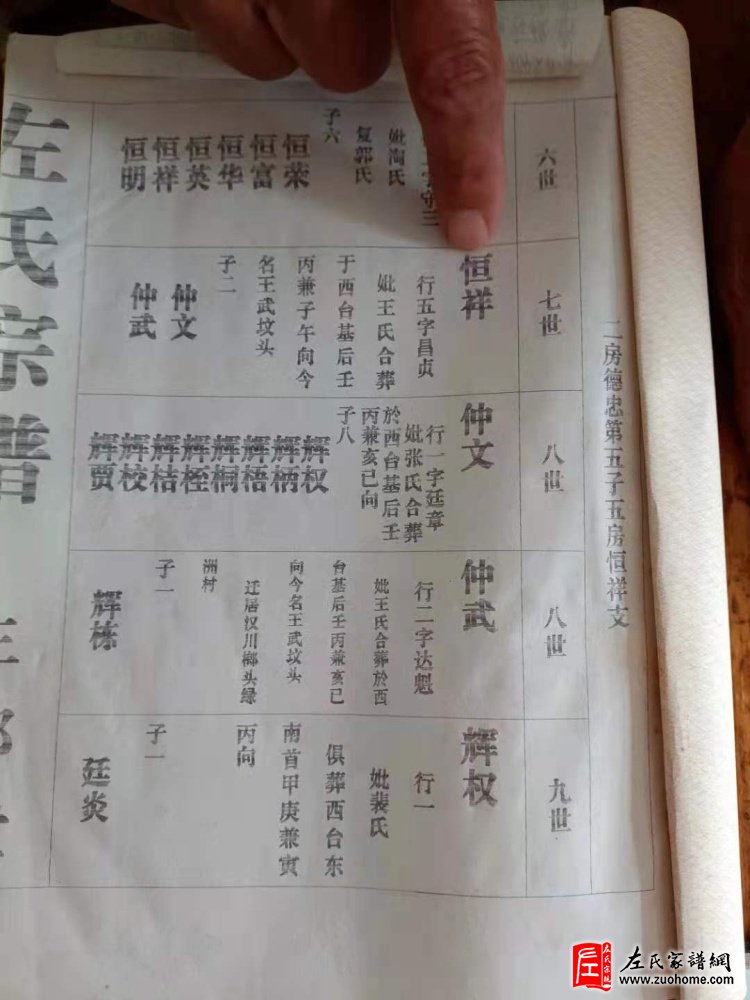 二房德忠第五子五房恒祥支
六世
妣陶氏
复郭氏
子六
恒荣
恒富
恒华
恒英
恒祥
恒明
七世
恒祥
行五字昌贞
妣王氏合葬
于西台基后壬
丙兼子午向今
名王武坟头
子二
仲文
仲武
八世
仲文
行一字廷章
妣张氏合葬
於西台基后壬
丙兼亥已向
子八
辉权
辉柄
辉梧
辉桐
辉桎
辉桔
辉校
辉贾
八世
仲武
行二字达魁
妣王氏合葬於西
台基后壬丙兼亥已
向今名王武坟头
迁居汉川榔头绿
洲村
子一
辉栋
九世
辉权
行一
妣裴氏
俱葬西台东
南首甲庚兼寅
丙向
子一
廷炎
左氏宗谱
左氏家譜網
www.zuohome.com